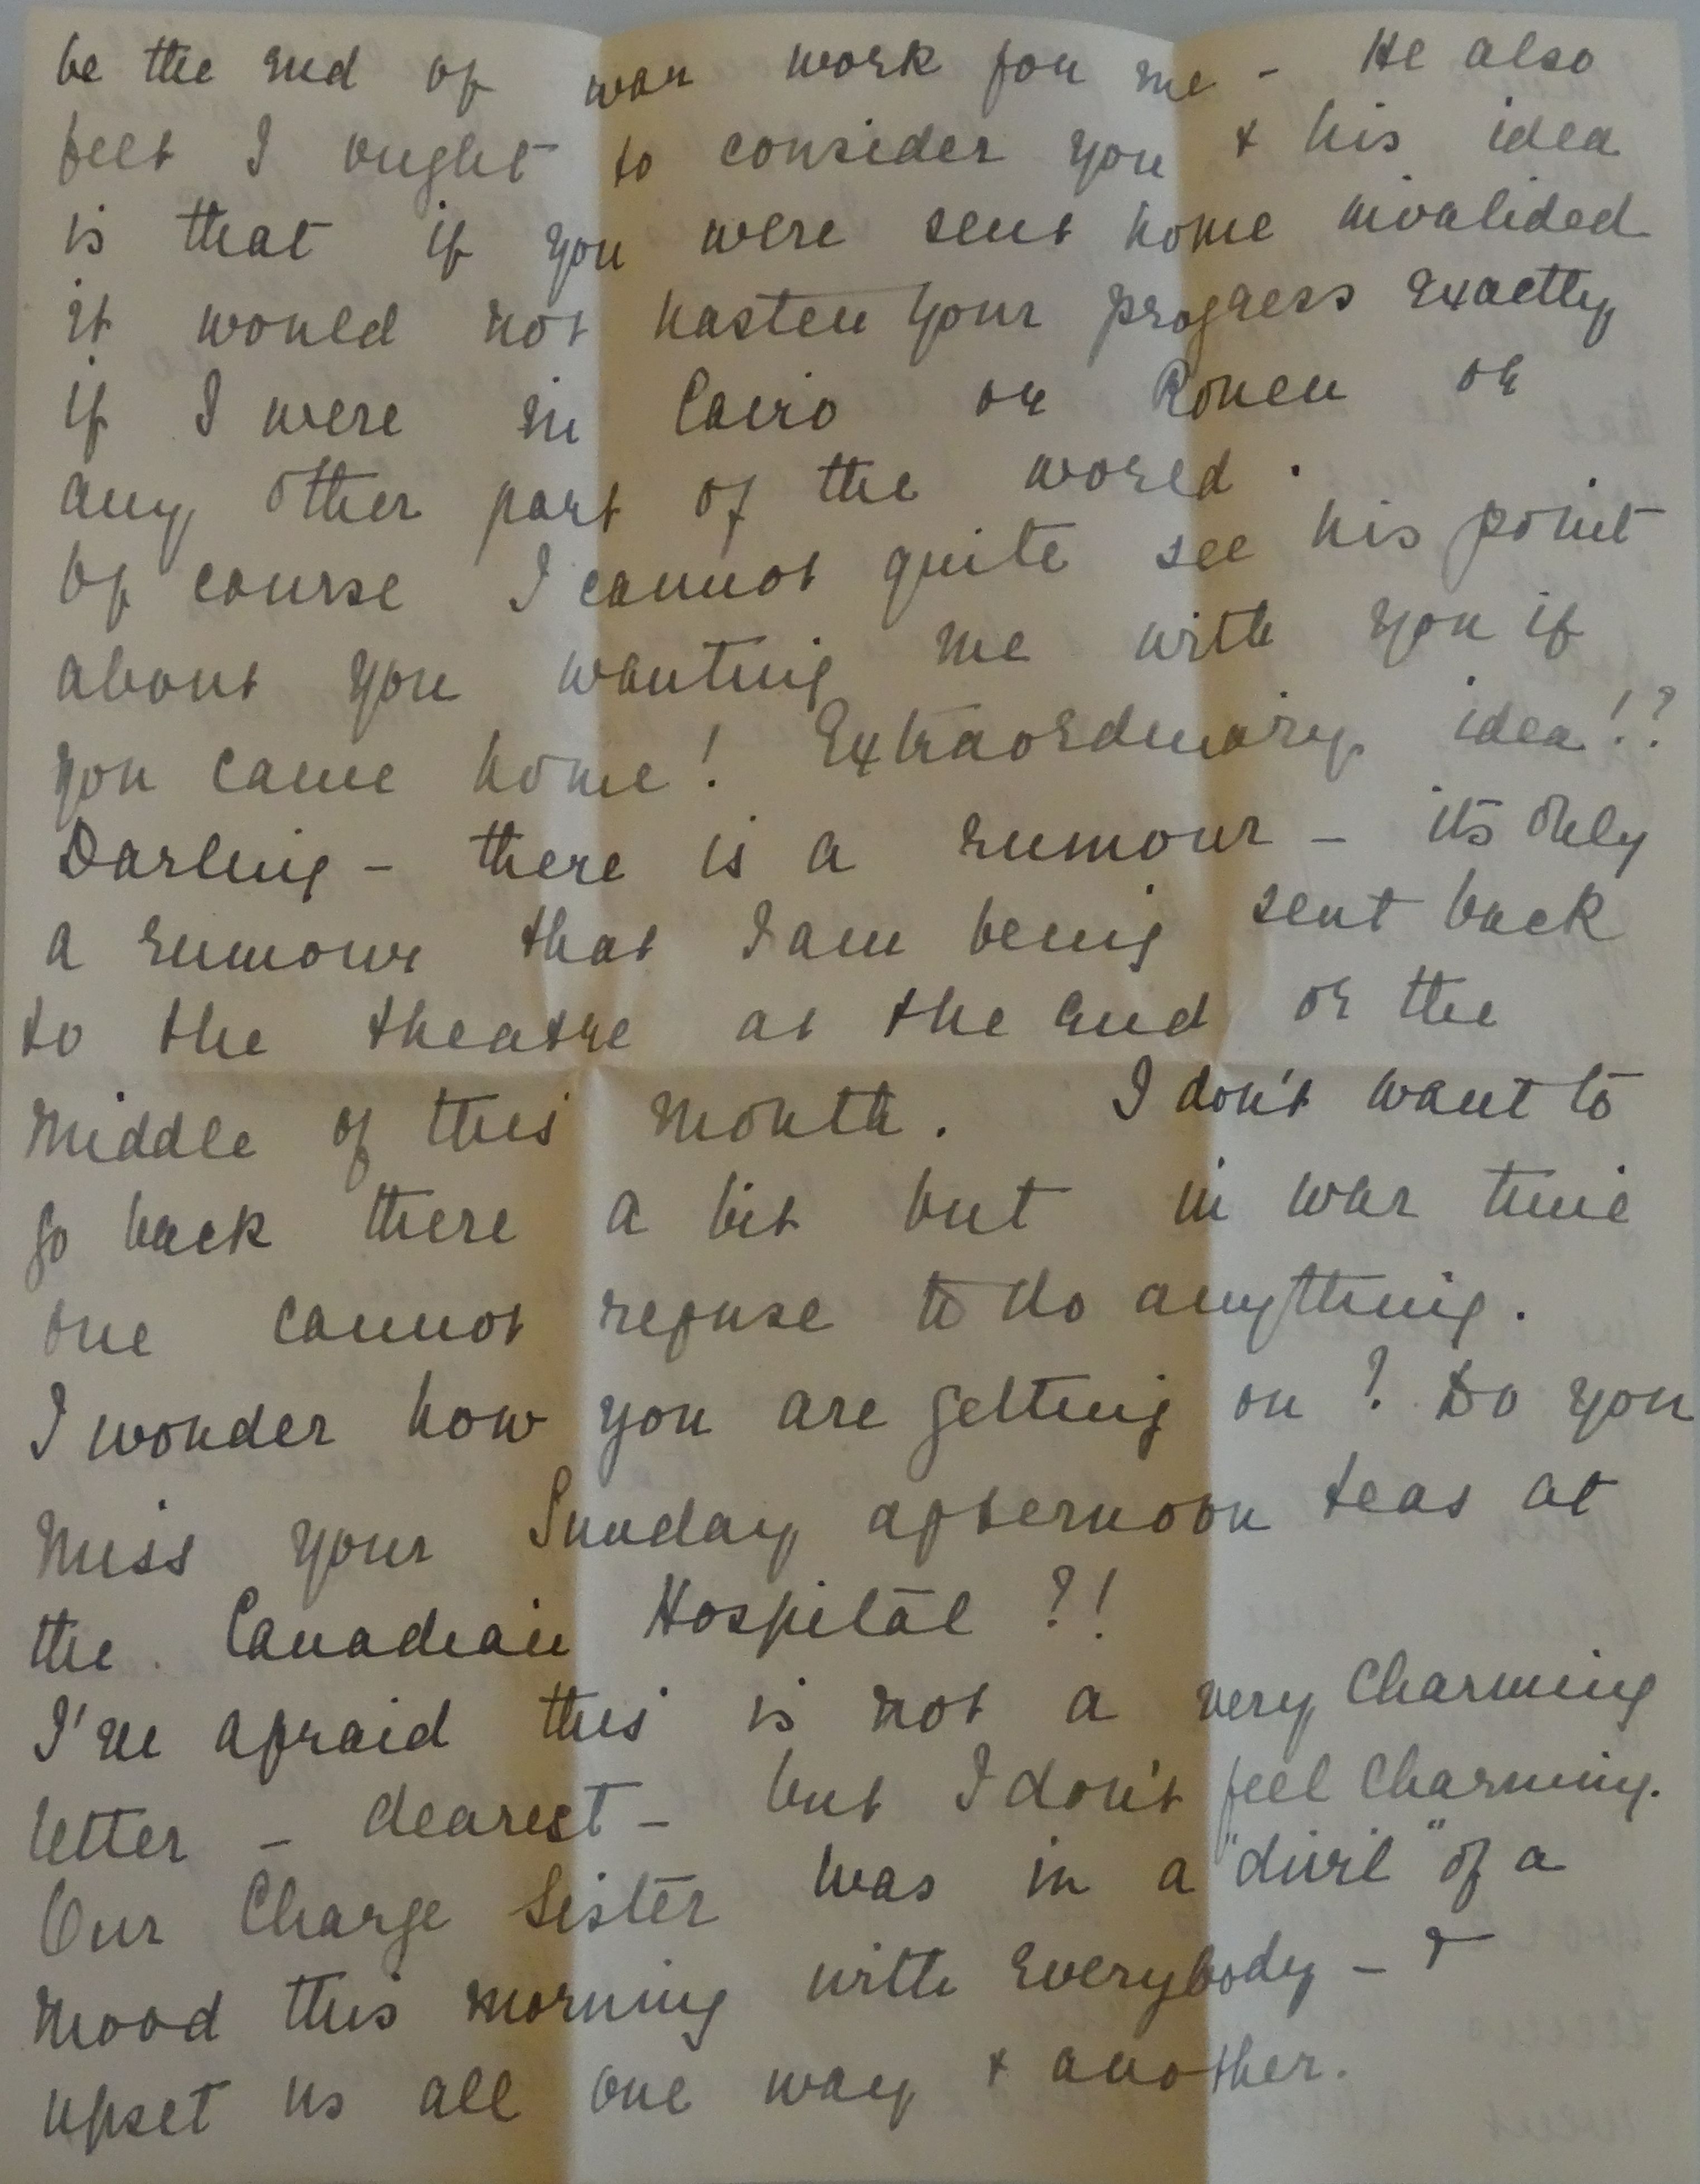 be the end of war work for me - He also
felt I ought to consider you & his idea
is that if you were sent home invalided
it would not hasten your progress exactly
if I were in Cairo or Rouen or
any other part of the world.
Of course I cannot quite see his point
about you wanting me with you if
you came home! Extraordinary idea!?
Darling - there is a rumour - its only
a rumour that I am being sent back
to the theatre at the end or the
middle of this month. I don't want to
go back there a bit but in war time
one cannot refuse to do anything.
I wonder how you are getting on? Do you
miss your Sunday afternoon teas at
the Canadian Hospital?!
I'm afraid this is not a very charming
letter - dearest - but I don't feel charming.
Our Charge Sister was in a "divil" of a
mood this morning with everybody - &
upset us all one way & another.